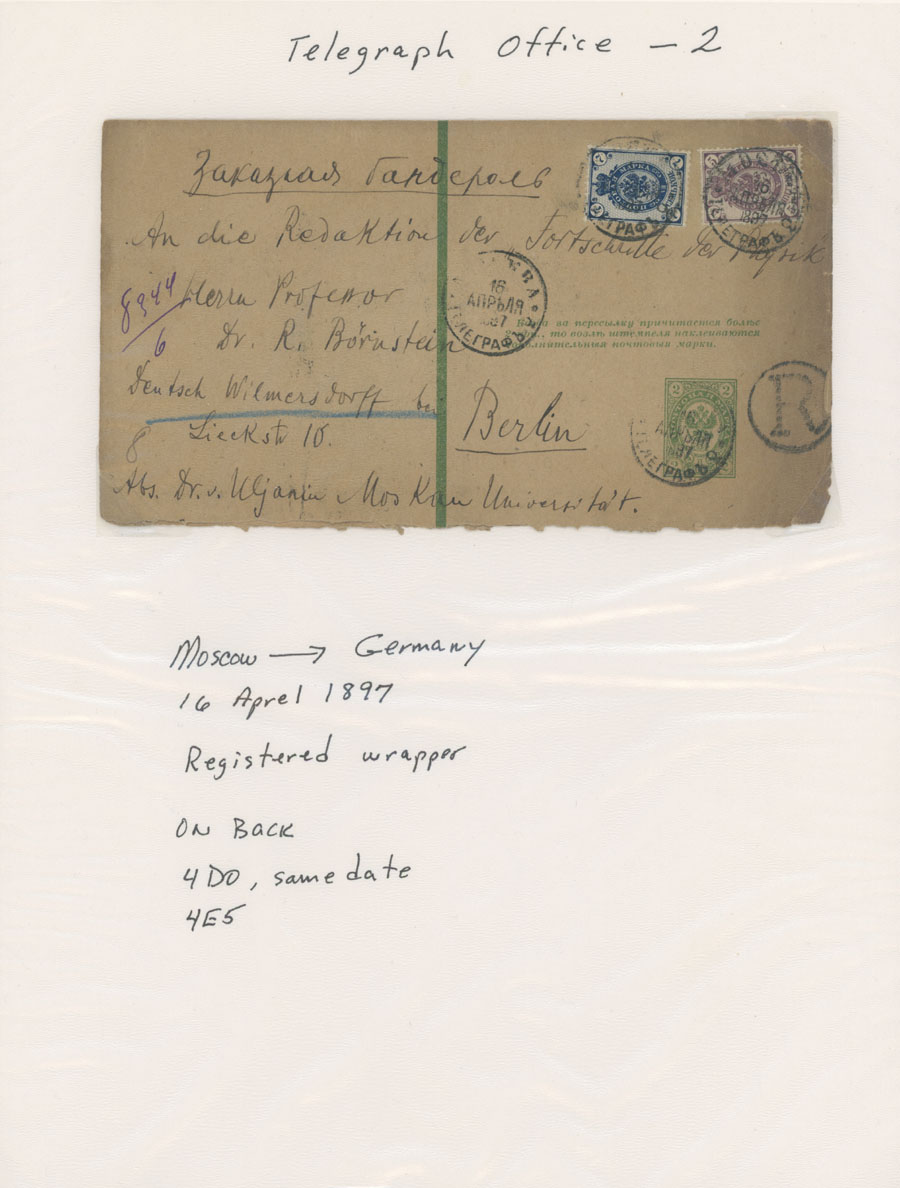 Telegraph Office - 2
Заказная бандероль
An die Redaktion der "Fortschritte der Physik
8344
6
Herrn Professor
Dr. R. Börnstein
Deutsch Wilmersdorff bei
Berlin
8
Abs. Dr. v. Uljanin Moskau Universität.
7
7
5
16
АПРѢЛЯ
ТЕЛЕГРАФЪ
за пересылку причитается болѣе
то возлѣ штемпеля наклеиваются
почтовыя марки.
2
2
R
Moscow → Germany
16 Aprel 1897
Registered wrapper
On Back
4D0, same date
4E5